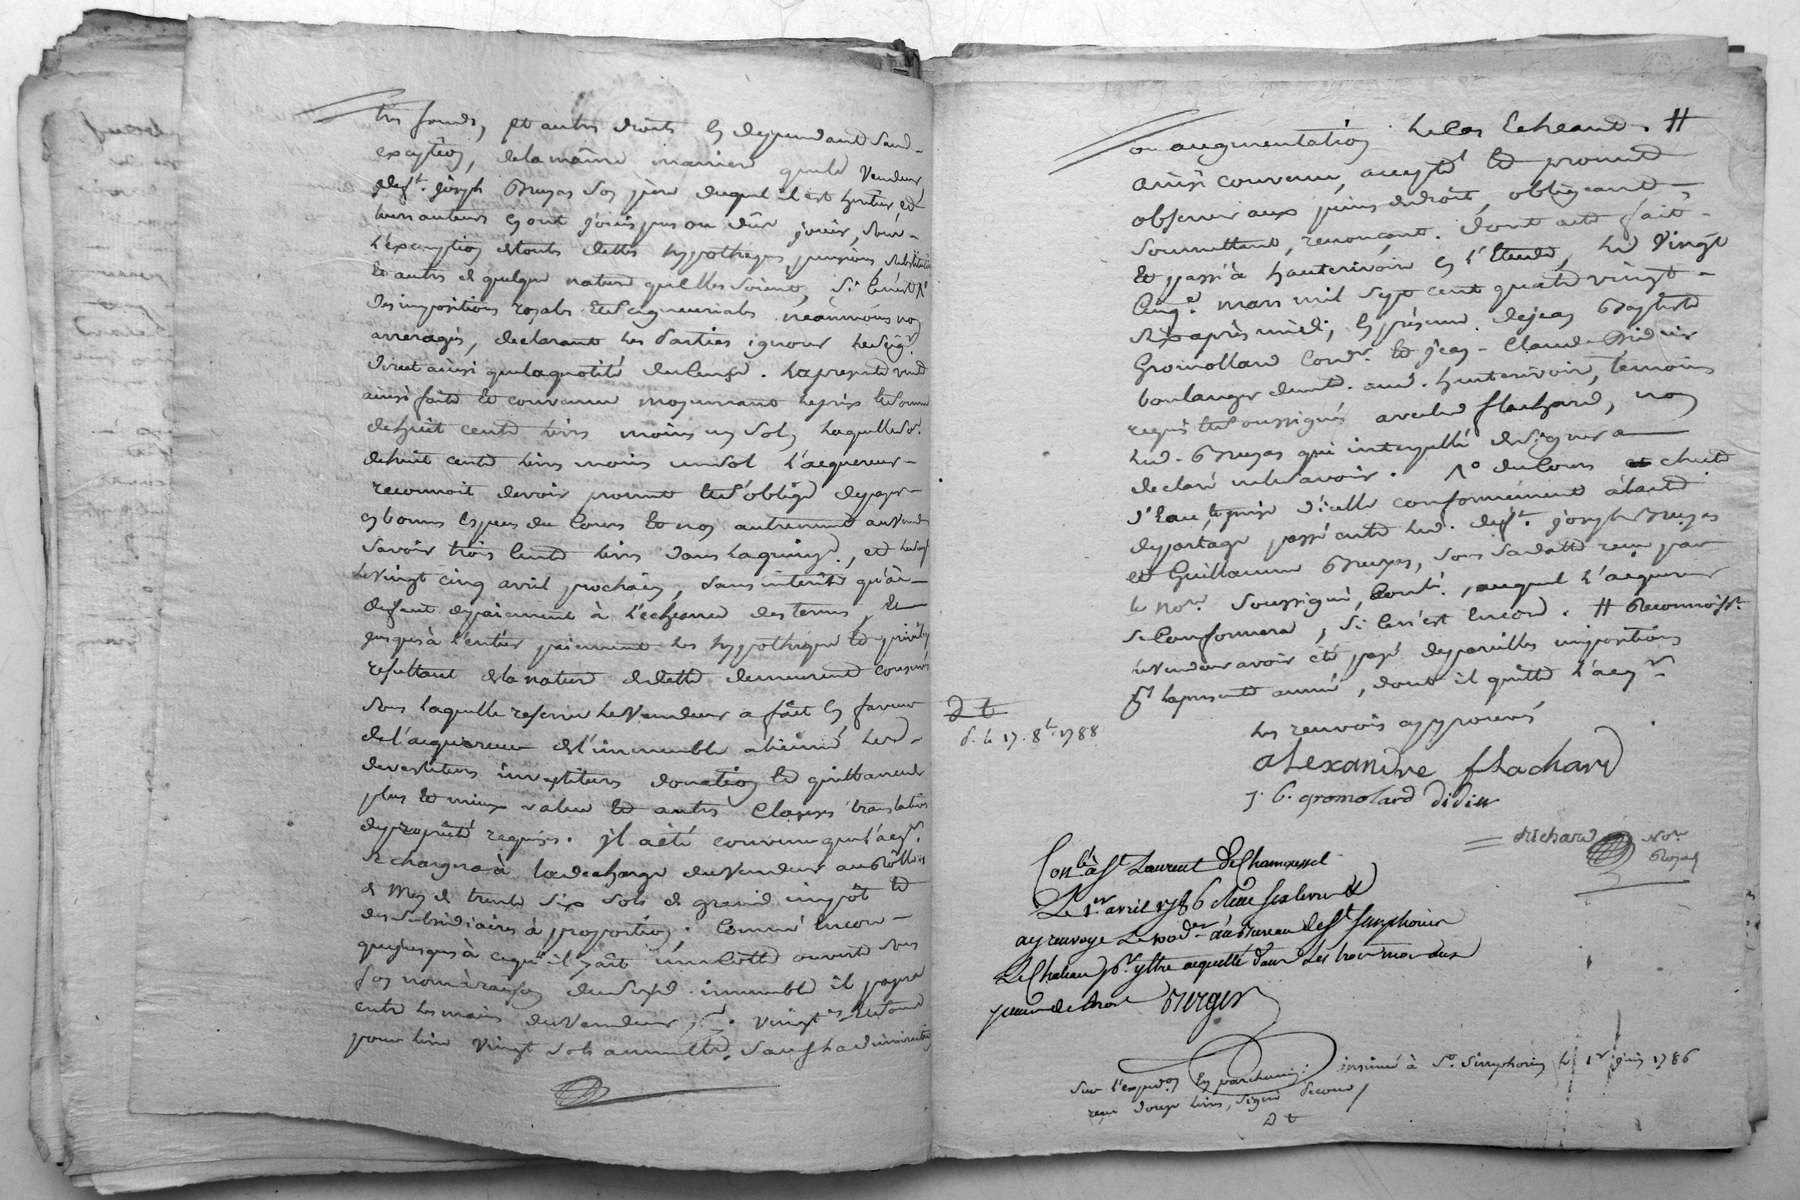 tres fonds, et autres droits en deppendant sans
exception, de la même maniere que le vendeur
deft. joseph Bruyas son père duquel il est heritier et
leurs auteurs en ont jouis pu ou dûs jouir, sous
l'exemption de touts dettes hypotheques pensions substitution
et autres de quelque nature quelles soient, si ce n'est #
des impositions royales et seigneuriales néanmoins non
arreragés, declarant les parties ignorer le seigr.
direct ainsi que la quotité du cens. la presente vente
ainsi faite et convenue moyennant le prix et somme
de huit cents livres moins un sol, laquelle so.
de huit cents livres moins un sol l'acquereur
reconnoit devoir promet et s'oblige de payer
en bonnes especes du cours et non autrement au vendeur
savoir trois cents livres dans la quinze., et
le vingt cinq avril prochain, sans interêts qu'au
defaut de paiement à l'echeance des termes, et
jusques à l'entier paiement les hypotheque et privilege
resultant de la nature de dette demeurent conservés
sous laquelle reserve le vendeur a fait en faveur
de l'acquereur de l'immeuble aliené les
devestitures investitures donation et quittances de
plus et mieux value et autres clauses translatives
de propriété requises. il a été convenu que l'acqr.
se chargera à la decharge du vendeur au Rôlle
de Mey de trente six sols de grand impôt et
des subsidiaires à proportion. comme encore
que jusques à ce qu'il y ait une cotte ouverte sous
son nom à raison du susd. immeuble il payera
entre les mains du vendeur vingt.es
pour livre vingt sols annuelle, sauf la diminution
ou augmentation le cas écheant. #
ainsi convenu, accepté et promis
observer aux peines de droit, obligeant
soumettant, renonçant. dont acte fait
et passé à hauterivoire en l'Etude, le vingt
cinqe. mars mil sept cent quatre vingt
six après midi, en présence de jean Baptiste
Gromollard Cordr. et jean Claude Didier
boulanger demt. aud. hauterivoire, temoins
requis et soussignés avec led flachard, non
led. Bruyas qui interpellé de signer a
declaré ne le savoir. # du Cours et chute
d'Eau, et prise d'icelle conformément à l'acte
de partage passé entre led. deft. joseph Bruyas
et Guillaume Bruyas, sous sa datte reçu par
le nore. soussigné, Conté., auquel l'acquereur
se conformera, si ce n'est encore. # Reconnoisst.
le vendeur avoir été payé de pareilles impositions
pr. la presente année, dont il quitte l'acqr.
les renvois approuvés
alexandre flachard
j. b. gromolard didier
Richard Nore.
Royal
d. le 17. 8bre. 1788
Conlé à St Laurent de Chamousset
Le 1er. avril 1786 Reçu six livres et
ay renvoye Le 100 der. au Bureau de St Simphorien
Le Chateau pr. y être acquitté dans les trois mois sous
peine de droit Berger
Sur l'expedon. En parchemin: insinué à St. Simphorien le 1er juin 1786
reçu douze livres, signé